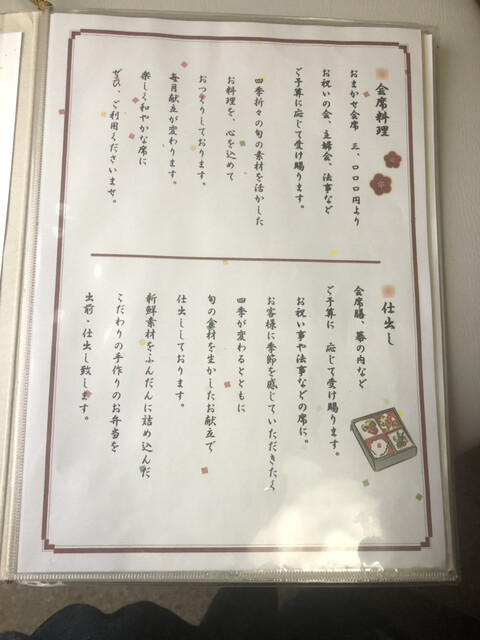 会席料理
おまかせ会席 三、〇〇〇円より
お祝いの会、主婦会、法事など
ご予算に応じて受け賜ります。
四季折々の旬の素材を活かした
お料理を、心を込めて
おつくりしております。
毎月献立が変わります。
楽しく和やかな席に
ぜひ、ご利用くださいませ。
仕出し
会席膳、幕の内など
ご予算に 応じて受け賜ります。
お祝い事や法事などの席に。
お客様に季節を感じていただきたく
四季が変わるとともに
旬の食材を生かしたお献立で
仕出ししております。
新鮮素材をふんだんに詰め込んだ
こだわりの手作りのお弁当を
出前・仕出し致します。